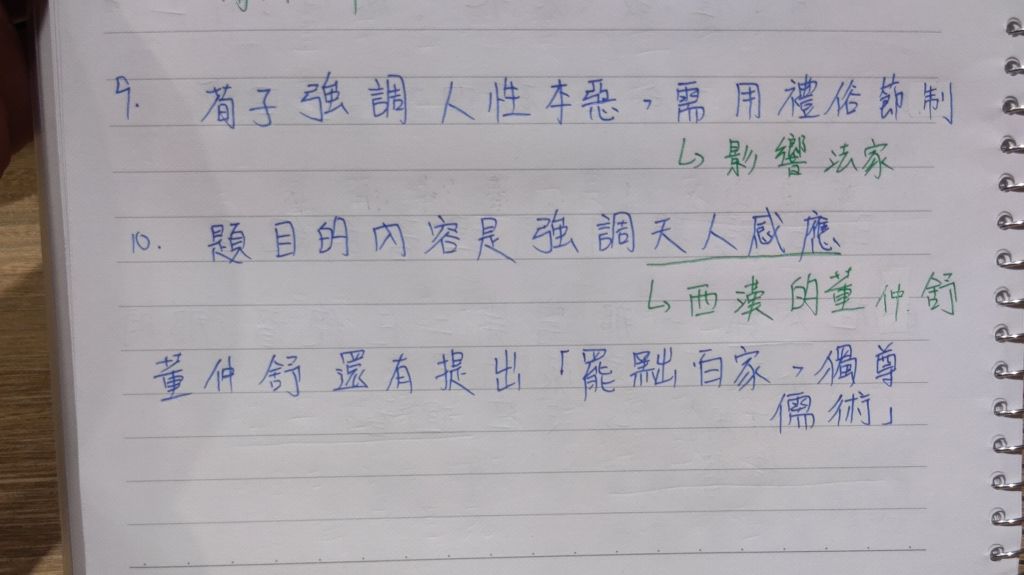 9. 荀子強調人性本惡，需用禮俗節制
↳影響法家
10. 題目的內容是強調天人感應
↳西漢的董仲舒
董仲舒還有提出「罷黜百家，獨尊
儒術」